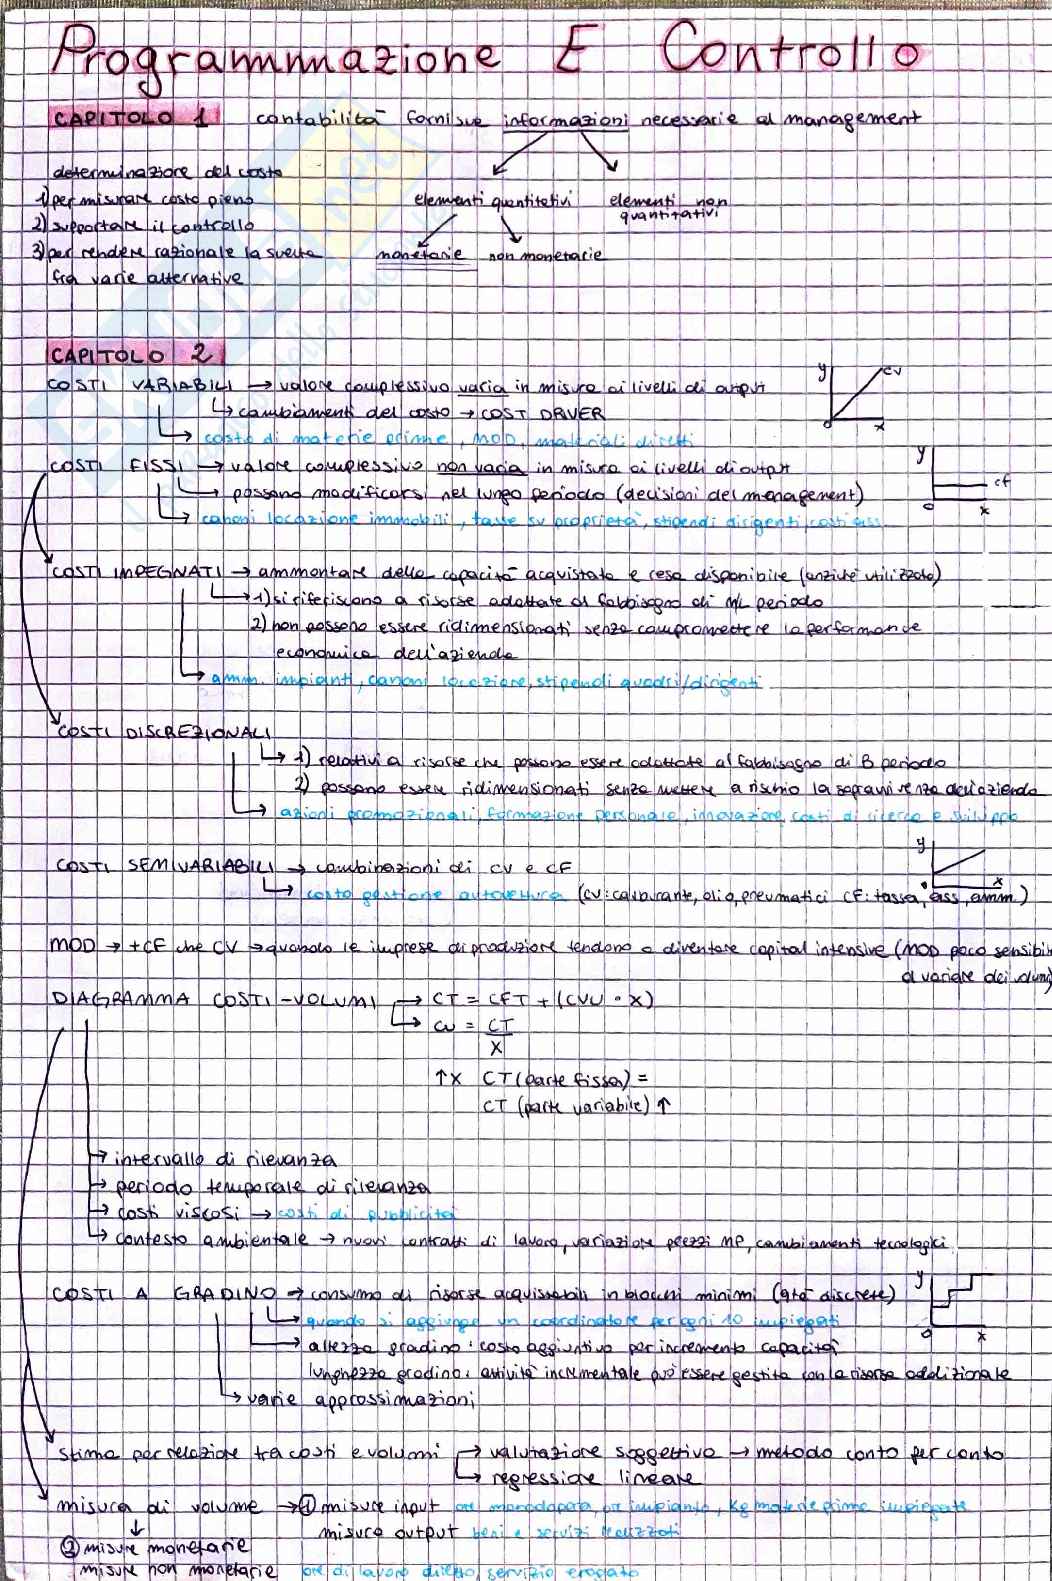 Programmazione E Controllo
CAPITOLO 1 contabilità fornisce informazioni necessarie al management
determinazione del costo
1) per misurare costo pieno
elementi quantitativi
elementi non quantitativi
2) supportare il controllo
3) per rendere razionale la scelta
monetarie non monetarie
fra varie alternative
CAPITOLO 2
COSTI VARIABILI → valore complessivo varia in misura ai livelli di output
y CV x 0
↳ cambiamenti del costo → COST DRIVER
↳ costo di materie prime, MOD, materiali diretti
COSTI FISSI → valore complessivo non varia in misura ai livelli di output
y cf x 0
↳ possono modificarsi nel lungo periodo (decisioni del management)
↳ canoni locazione immobili, tasse su proprietà, stipendi dirigenti, costi ass.
COSTI IMPEGNATI → ammontare della capacità acquistata e resa disponibile (anziché utilizzata)
↳ 1) si riferiscono a risorse adattate al fabbisogno di M/L periodo
2) non possono essere ridimensionati senza compromettere la performance
economica dell'azienda
↳ amm. impianti, canoni locazione, stipendi quadri/dirigenti
COSTI DISCREZIONALI
↳ 1) relativi a risorse che possono essere adattate al fabbisogno di B periodo
2) possono essere ridimensionati senza mettere a rischio la sopravvivenza dell'azienda
↳ azioni promozionali, formazione personale, innovazione, costi di ricerca e sviluppo
COSTI SEMIVARIABILI → combinazioni di CV e CF
y x
↳ costo gestione autovettura (CV: carburante, olio, pneumatici CF: tassa, ass, amm.)
MOD → + CF che CV → quando le imprese di produzione tendono a diventare capital intensive (MOD poco sensibile
al variare dei volumi)
DIAGRAMMA COSTI-VOLUMI → CT = CFT + (CVU · X)
↳ CU = CT
X
↑X CT (parte fissa) =
CT (parte variabile) ↑
↳ intervallo di rilevanza
↳ periodo temporale di rilevanza
↳ costi viscosi → costi di pubblicità
↳ contesto ambientale → nuovi contratti di lavoro, variazione prezzi MP, cambiamenti tecnologici
COSTI A GRADINO → consumo di risorse acquistabili in blocchi minimi (qtà discrete)
y x 0
↳ quando si aggiunge un coordinatore per ogni 10 impiegati
→ altezza gradino: costo aggiuntivo per incremento capacità
lunghezza gradino: attività incrementale può essere gestita con la risorsa addizionale
↳ varie approssimazioni
stima per relazione tra costi e volumi → valutazione soggettiva → metodo conto per conto
↳ regressione lineare
misura di volume → ① misure input ore manodopera, ore impianto, Kg materie prime impiegate
misura output beni e servizi realizzati
② misure monetarie
misure non monetarie ore di lavoro diretto, servizio erogato